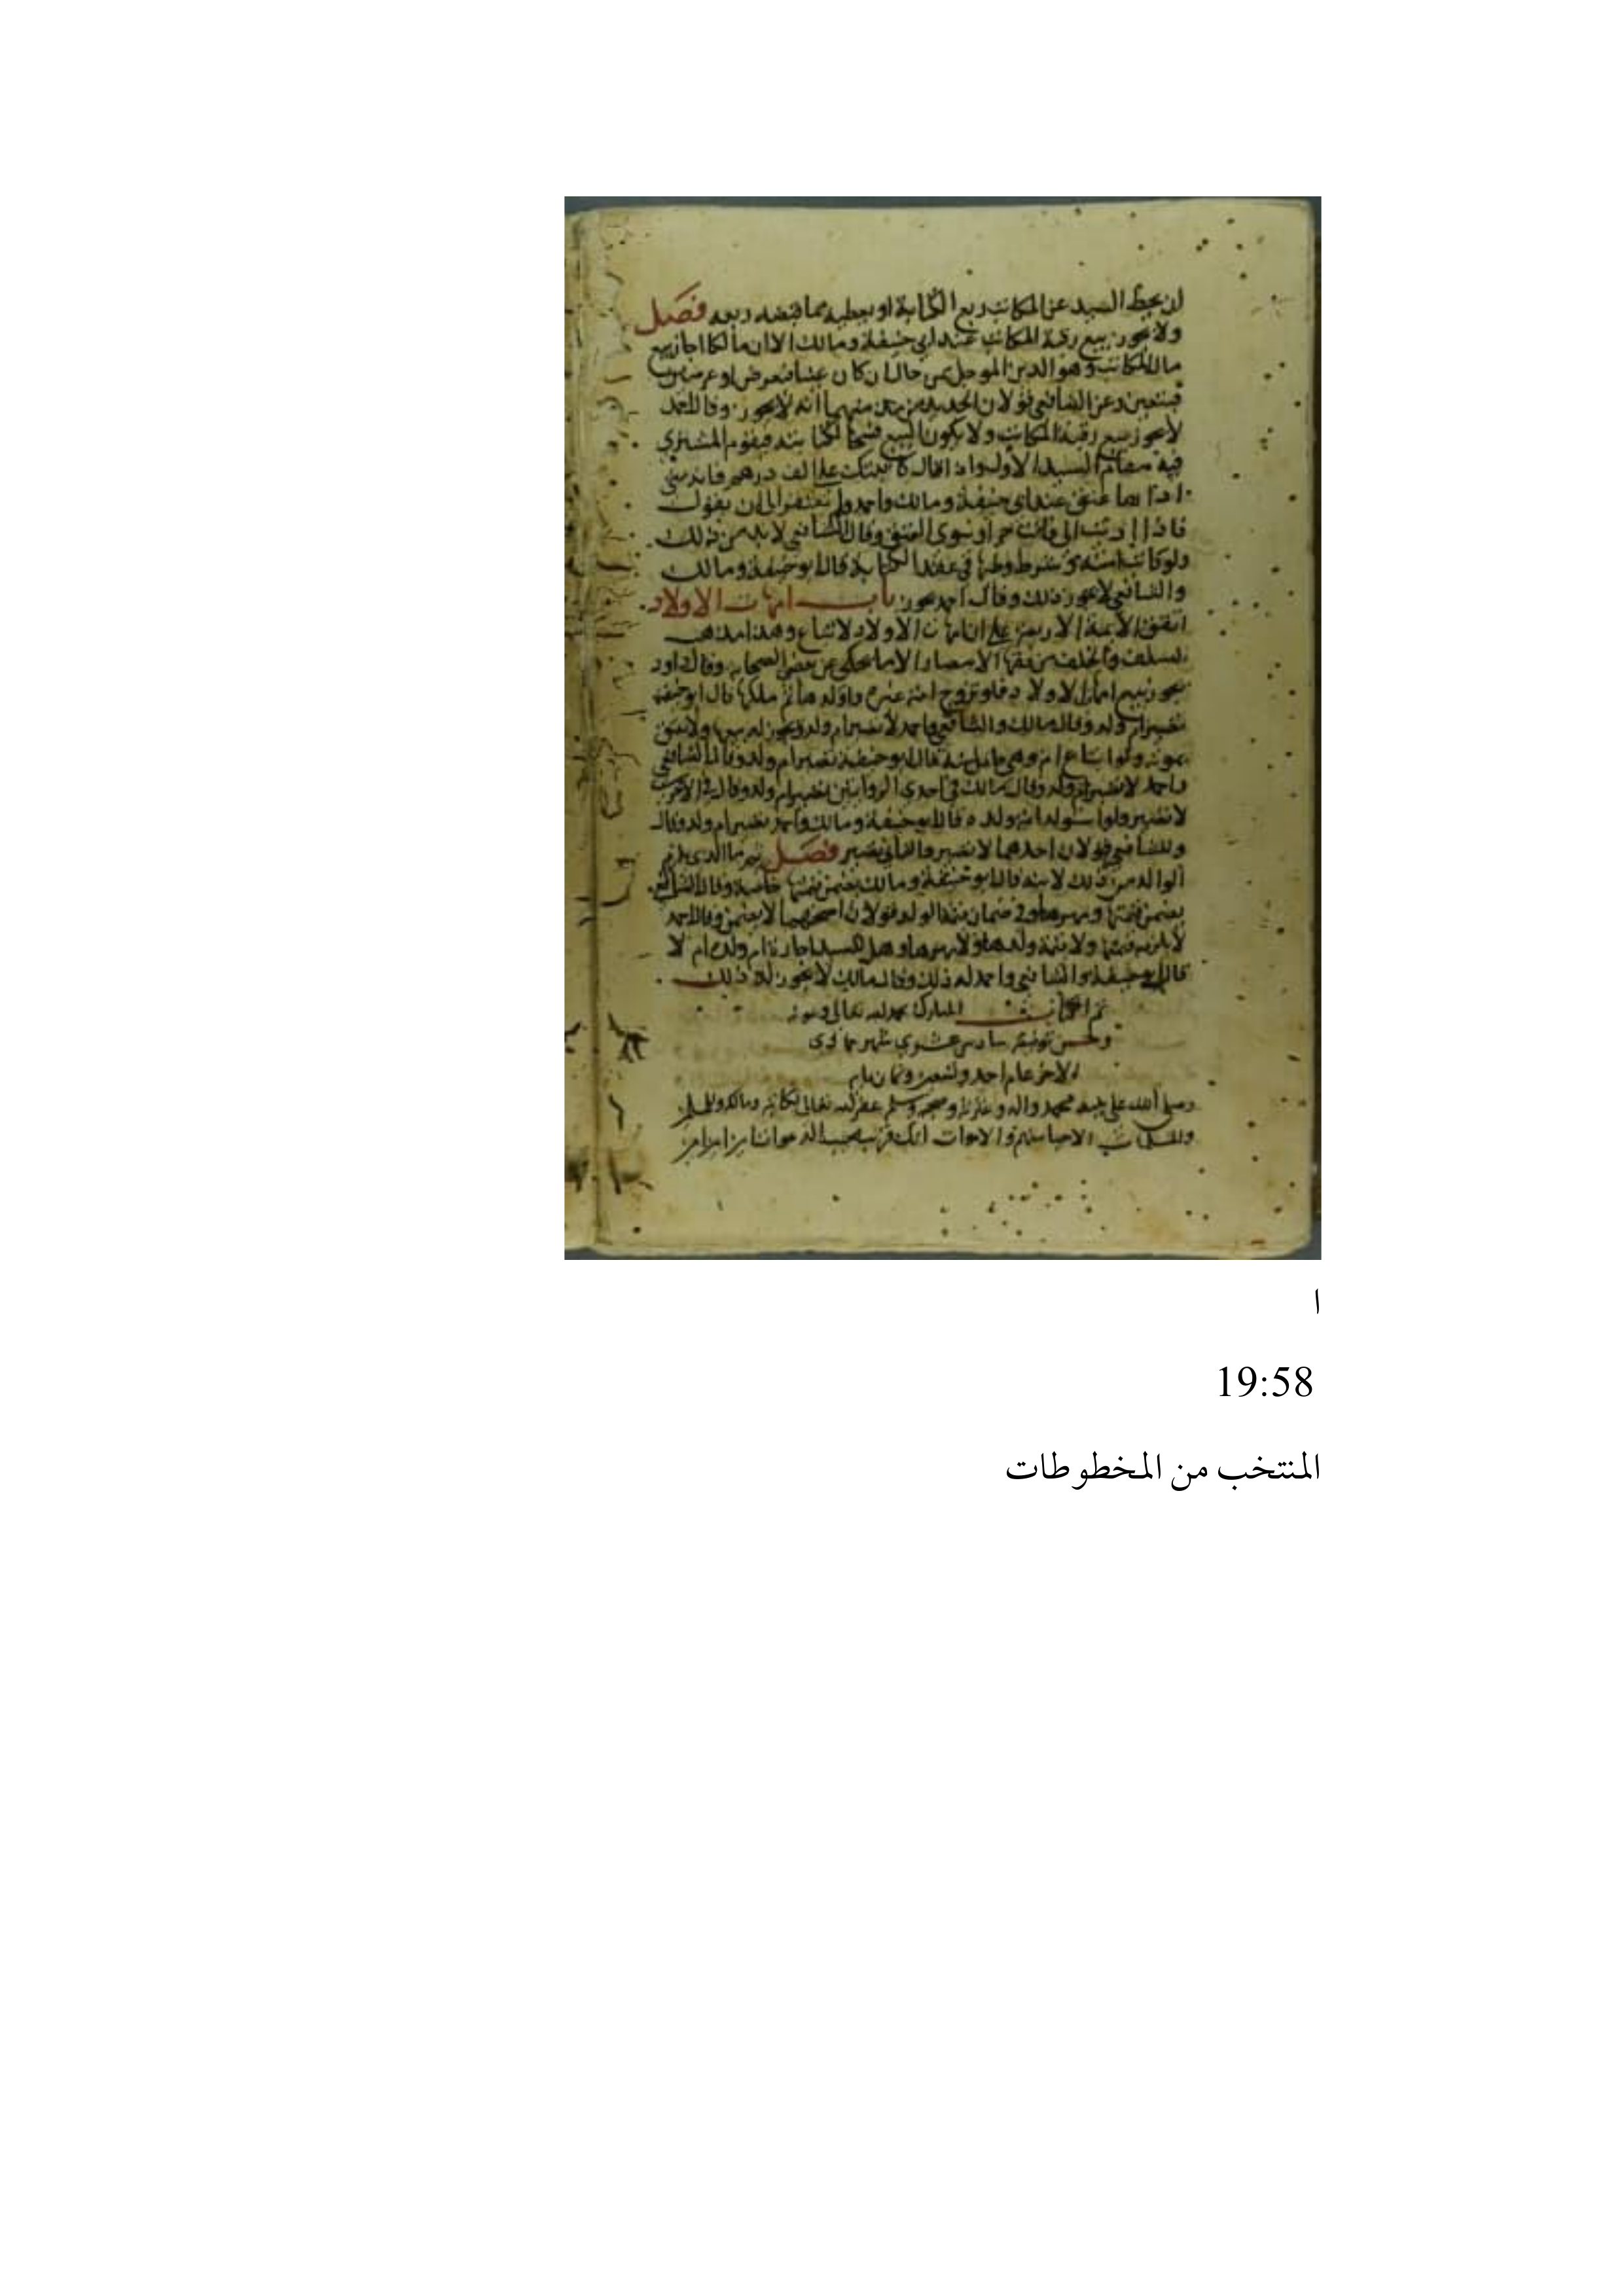 ان يحط السيد عن المكاتب ربع الكتابة او يعطيه مما قبضه ربعه فصل
ولا يجوز بيع رقبة المكاتب عند ابي حنيفة ومالك الا ان مالكا اجاز بيع
مال المكاتب وهو الدين الموجل بثمن حال ان كان عينا فبعرض او عرضا
فبعين وعن الشافعي قولان الجديد منهما انه لا يجوز وقال احمد
يجوز بيع رقبة المكاتب ولا يكون البيع فسخا لكتابته فيقوم المشتري
فيه مقام السيد الاول واذا قال كاتبتك على الف درهم فانه متى
اداها عتق عند ابي حنيفة ومالك واحمد ولم يفتقر الى ان يقول
فاذا اديت الي فانت حر او نوى العتق وقال الشافعي لا بد من ذلك
ولو كاتب امته وشرط وطئها في عقد الكتابة قال ابو حنيفة ومالك
والشافعي لا يجوز ذلك وقال احمد يجوز باب امهات الاولاد
اتفق الائمة الاربعة على ان امهات الاولاد لا تباع وهذا مذهب
السلف والخلف من فقهاء الامصار الا ما يحكى عن بعض الصحابه وقال داود
يجوز بيع امهات الاولاد فلو تزوج امة غيره واولدها ثم ملكها قال ابو حنيفة
تصير ام ولد وقال مالك والشافعي واحمد لا تصير ام ولد ويجوز له بيعها ولا تعتق
بموته ولو ابتاع امة وهي حامل منه قال ابو حنيفة تصير ام ولد وقال الشافعي
واحمد لا تصير ام ولد وقال مالك في احدى الروايتين تصير ام ولد وقال في الاخرى
لا تصير ولو استولد امة ولده قال ابو حنيفة ومالك واحمد تصير ام ولد وقال
وللشافعي قولان احدهما لا تصير والثاني تصير فصل ثم ما الذي يلزم
الوالد من ذلك لابنه قال ابو حنيفة ومالك يضمن قيمتها خاصة وقال الشافعي
يضمن قيمتها ومهرها وفي ضمان قيمة الولد قولان اصحهما لا يضمن وقال احمد
لا يلزمه قيمتها ولا قيمة ولدها ولا مهرها وهل للسيد اجارة ام ولده ام لا
قال ابو حنيفة والشافعي واحمد له ذلك وقال مالك لا يجوز له ذلك
تم الكتاب المبارك بحمد الله تعالى وعونه
وحسن توفيقه سادس عشري شهر جمادى
الاخر عام احد وتسعين وثمان مايه
وصلى الله على سيدنا محمد واله وعترته وصحبه وسلم غفر الله تعالى لكاتبه ومالكه وللمسلمين
والمسلمات الاحيا منهم والاموات انك قريب مجيب الدعوات امين امين امين
ا
19:58
المنتخب من المخطوطات